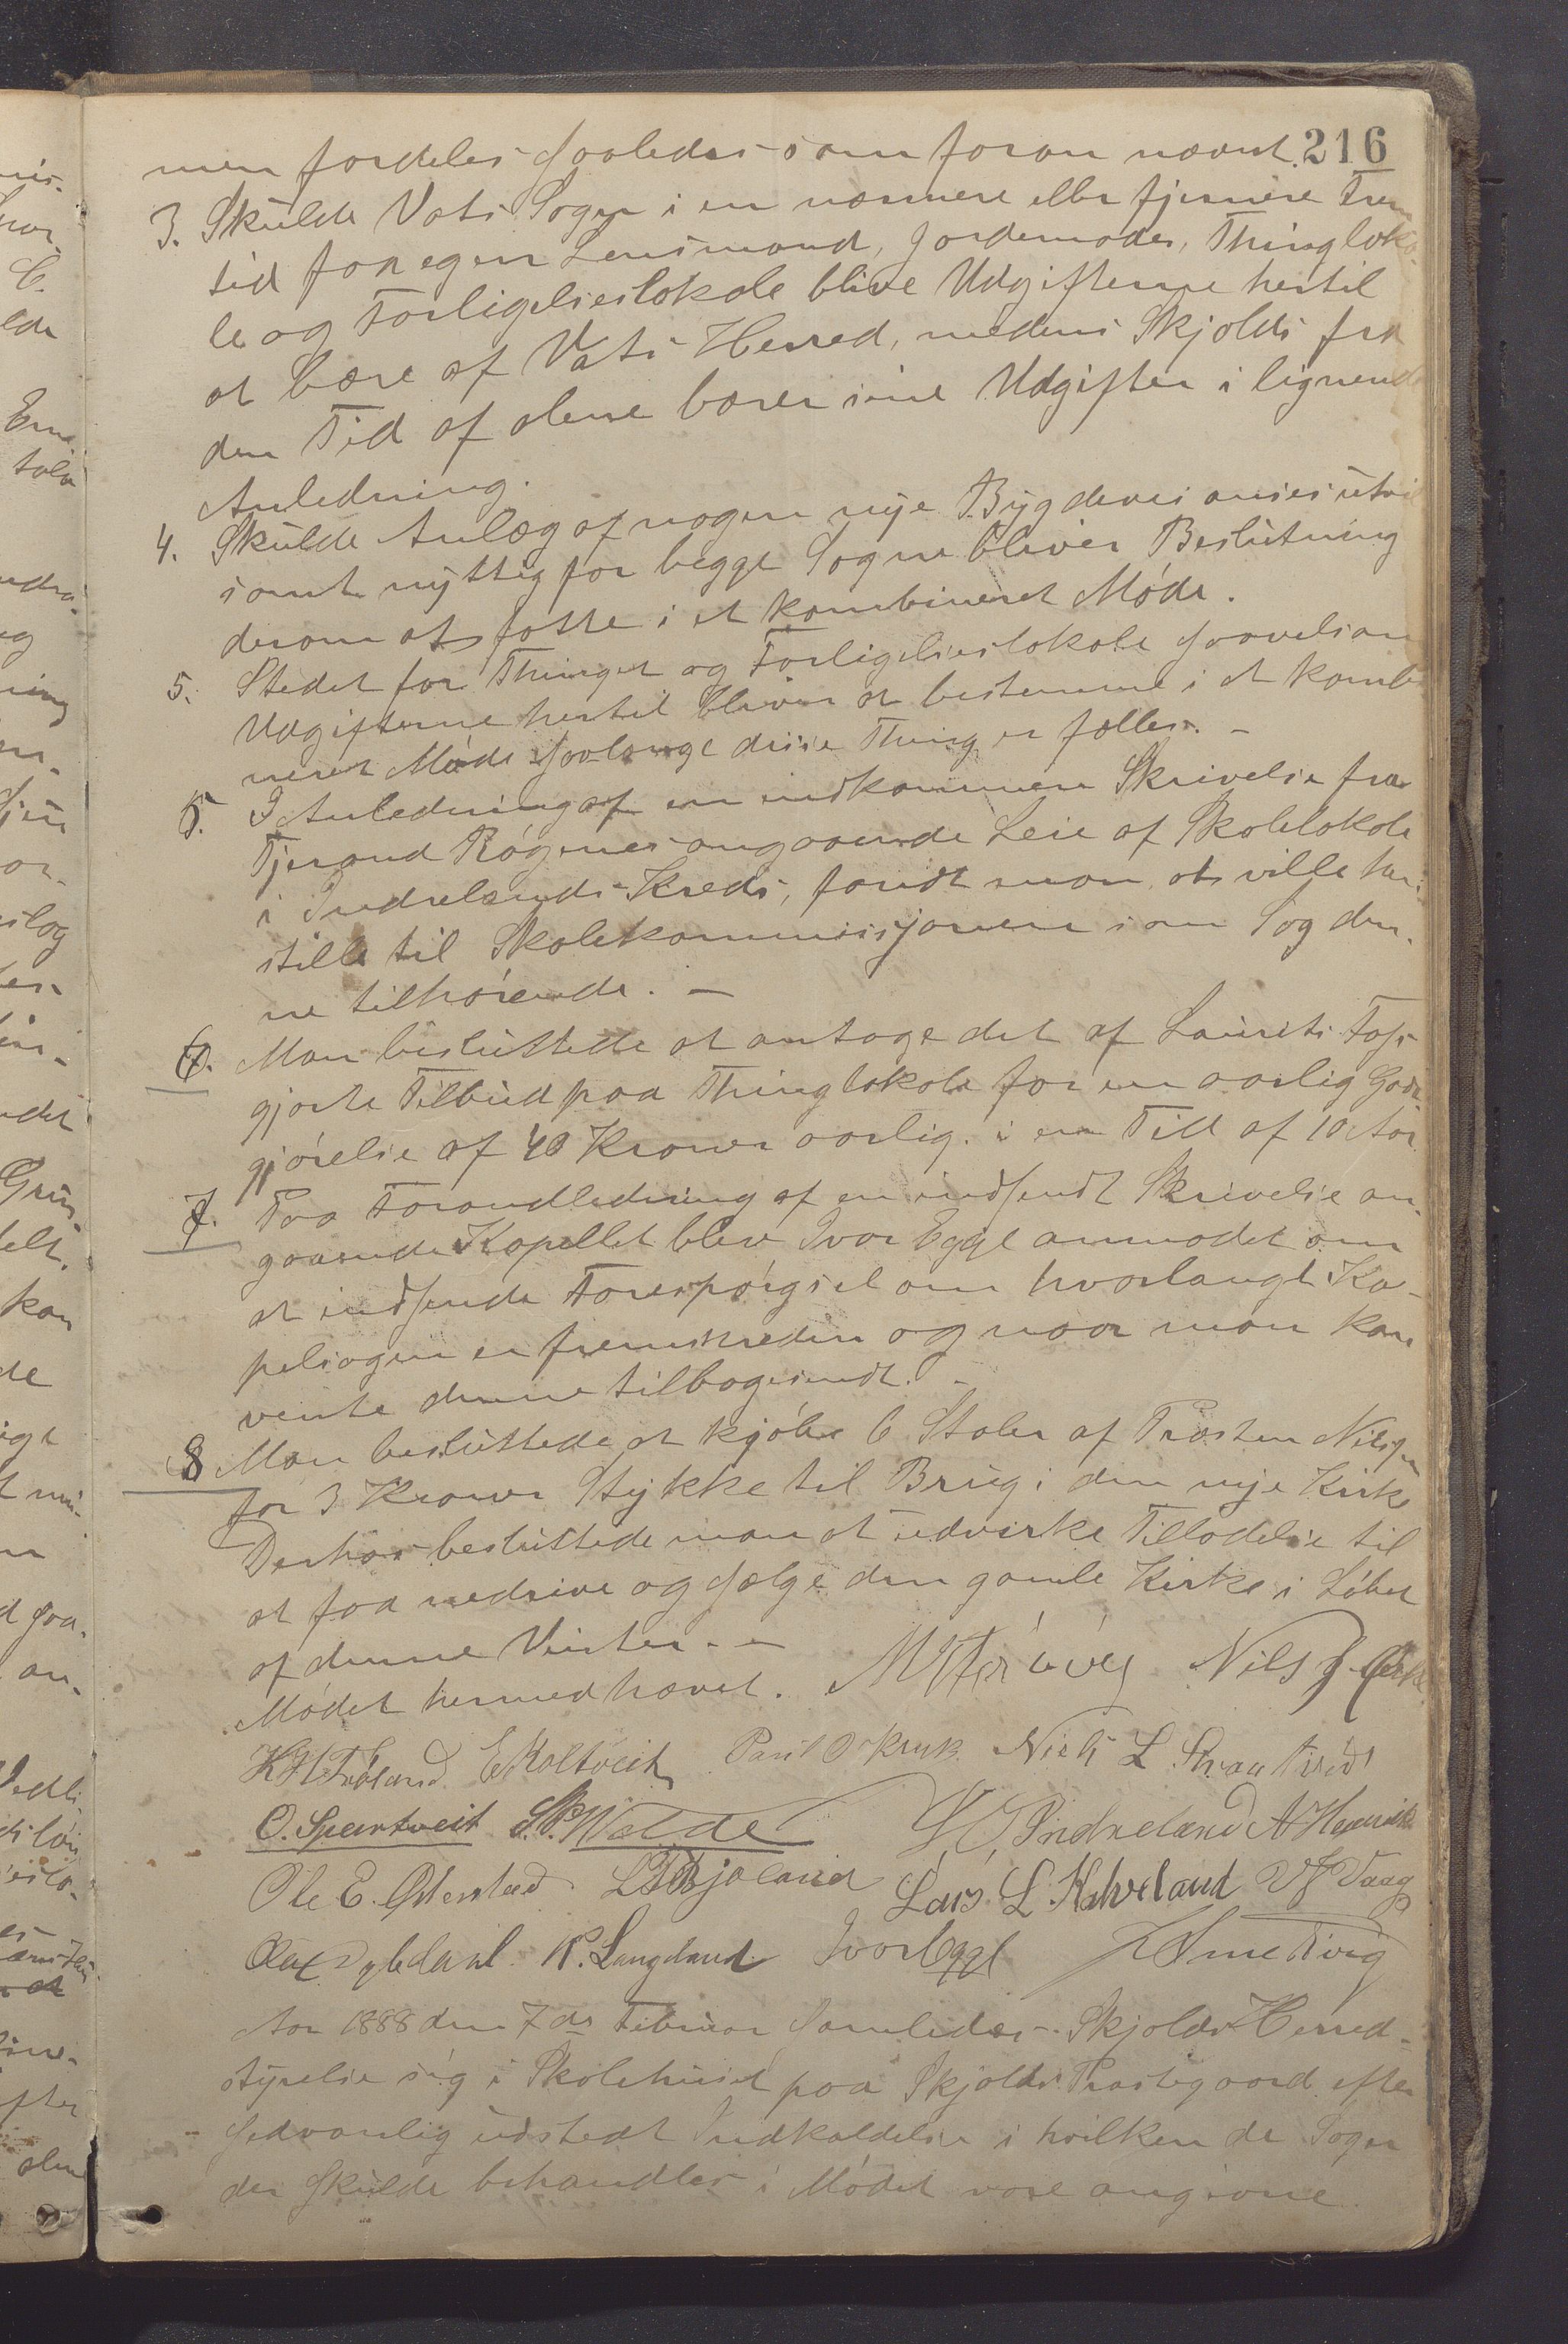 216
men fordeles saaledes som foran nævnt.
3. Skulde Vats Sogn i en nærmere eller fjernere Frem
tid faa egen Lensmand, Jordemoder, Thingloka-
le og Forligelseslokale blive Udgifterne hertil
at bære af Vats Herred, medens Skjolds fra
den Tid af alene bærer sine Udgifter i lignende
Anledning.
4. Skulde Anlæg af nogen nye Bygdeveis ansees utvil
somt nyttig for begge Sogne bliver Beslutning
derom at fatte i et kombineret Møde.
5. Stedet for Thinget og Forligelseslokale saavelsom
Udgifterne hertil bliver at bestemme i et kombi
neret Møde saalænge disse Thing er fælles. -
5. I Anledning af en indkommen Skrivelse fra
Tjerand Røgenes angaaende Leie af Skolelokale
i Indrelands Kreds, fandt man at ville hen-
stille til Skolekommissjonen som Sag den-
ne tilhørende. -
6. Man besluttede at antage det af Laurits
gjorte Tilbud paa Thinglokale for en aarlig Godt-
gjørelse af 40 Kroner aarlig i en Tid af 10 Aar
7. Paa Foranledning af en indsendt Skrivelse an-
gaaende Kapellet blev Ivar Egge anmodet om
at indsende Forespørgsel om hvorlangt Ka-
pelsagen er fremskreden og naar man kan
vente denne tilbagesendt. -
8 Man besluttede at kjøbe 6 Stoler af Præsten Nilssen
for 3 Kroner Stykke til Brug i den nye Kirke
Derhos besluttede man at udvirke Tilladelse til
at faa nedrive og sælge den gamle Kirke i Løbet
af denne Vinter. -
Mødet hermed hævet. Nils
E Koltveit Nils L
O. Spartveit S. P. Walde Indreland
Ole E. Østersted Lars L Halveland Vaag
K. Langeland Ivar Egge Smedsvig
Aar 1888 den 7de Februar samledes Skjolds Herred-
styrelse sig i Skolehuset paa Skjolds Præstegaard efter
sedvanlig udstedt Indkaldelse i hvilken de Sager
der skulde behandles i Mødet vare angivne